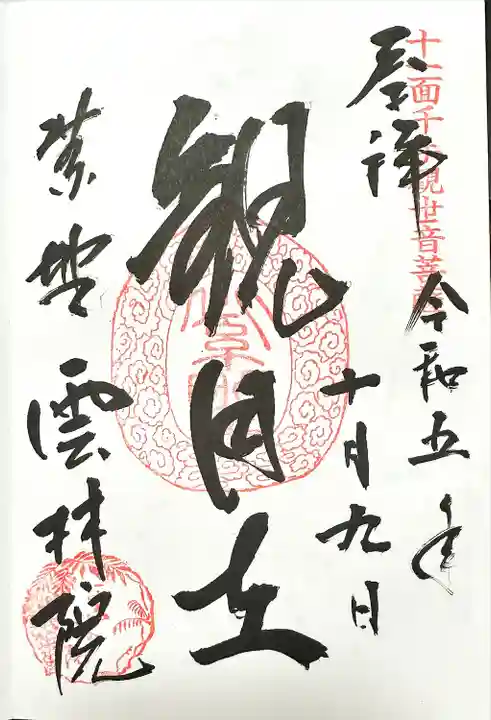 十一面千手観世音菩薩
奉拝
令和五年
十月九日
観自在
紫野雲林院